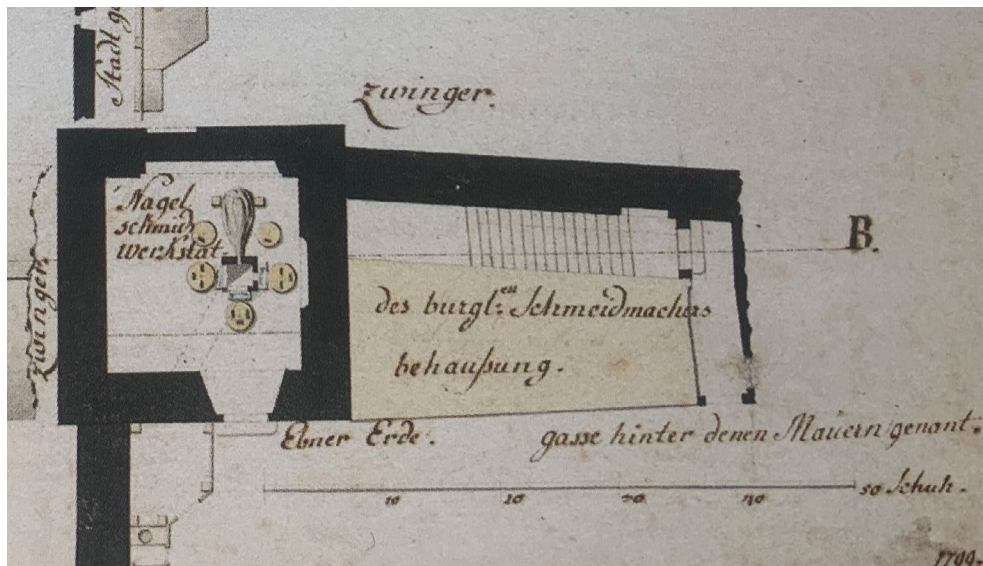 Stadt
Zwinger.
Nagel
schmid
werkstat.
B.
Zwinger.
des burgl:en Schmeidmachers
behaußung.
Ebner Erde.
gasse hinter denen Mauern genant.
10 20 30 40 50 Schuh.
1799.